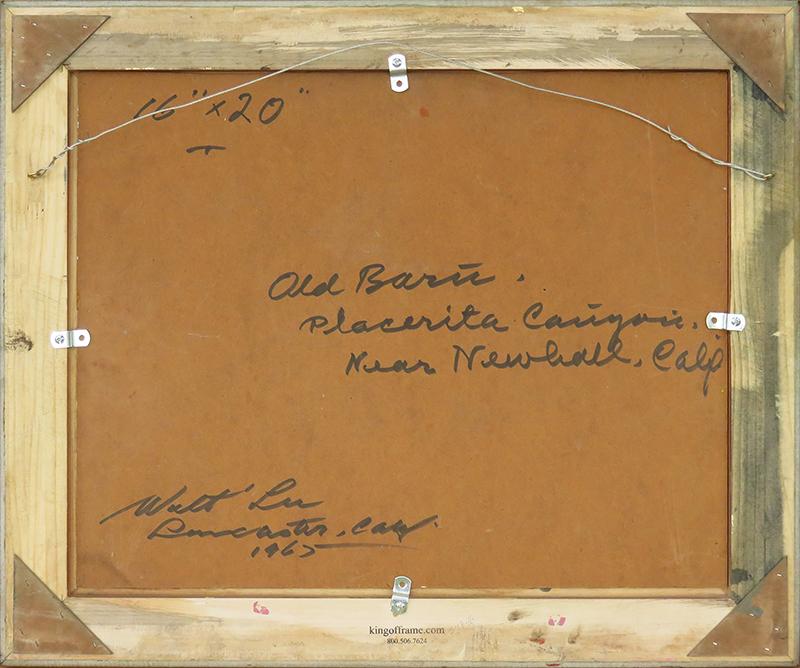 16" x 20"
Old Barn.
Placerita Canyon.
Near Newhall, Calif
Walt Lee
Lancaster, Calif
1965
kingofframe.com
800.506.7624